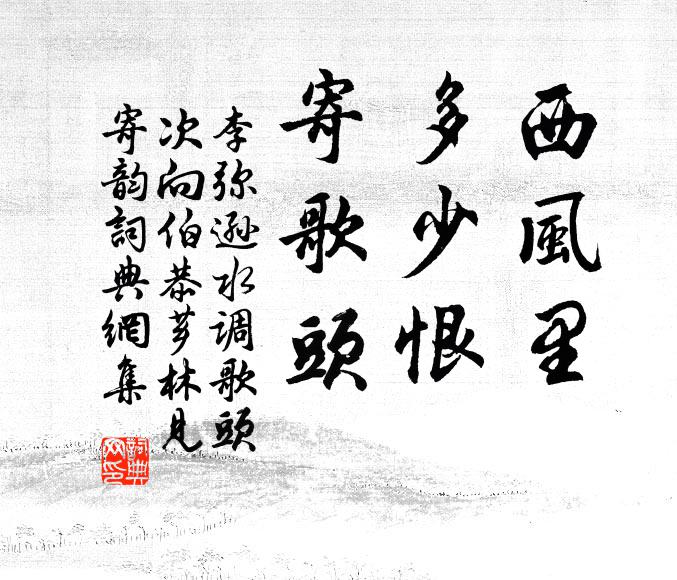 西風里
多少恨
寄歌頭
李弥遜水调歌頭
次向伯恭芗林見
寄韵詞典網集